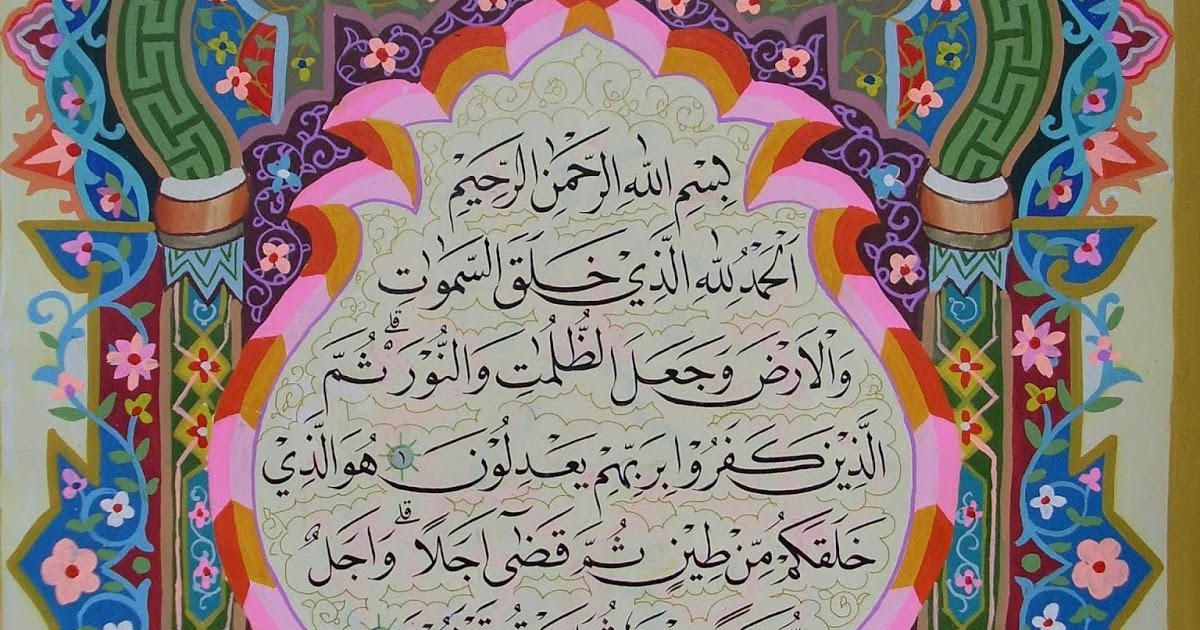 بِسْمِ اللّٰهِ الرَّحْمٰنِ الرَّحِيْمِ
اَلْحَمْدُ لِلّٰهِ الَّذِيْ خَلَقَ السَّمٰوٰتِ
وَالْاَرْضَ وَجَعَلَ الظُّلُمٰتِ وَالنُّوْرَ ۗ ثُمَّ
الَّذِيْنَ كَفَرُوْا بِرَبِّهِمْ يَعْدِلُوْنَ ١ هُوَ الَّذِيْ
خَلَقَكُمْ مِّنْ طِيْنٍ ثُمَّ قَضٰٓى اَجَلًا ۗ وَاَجَلٌ